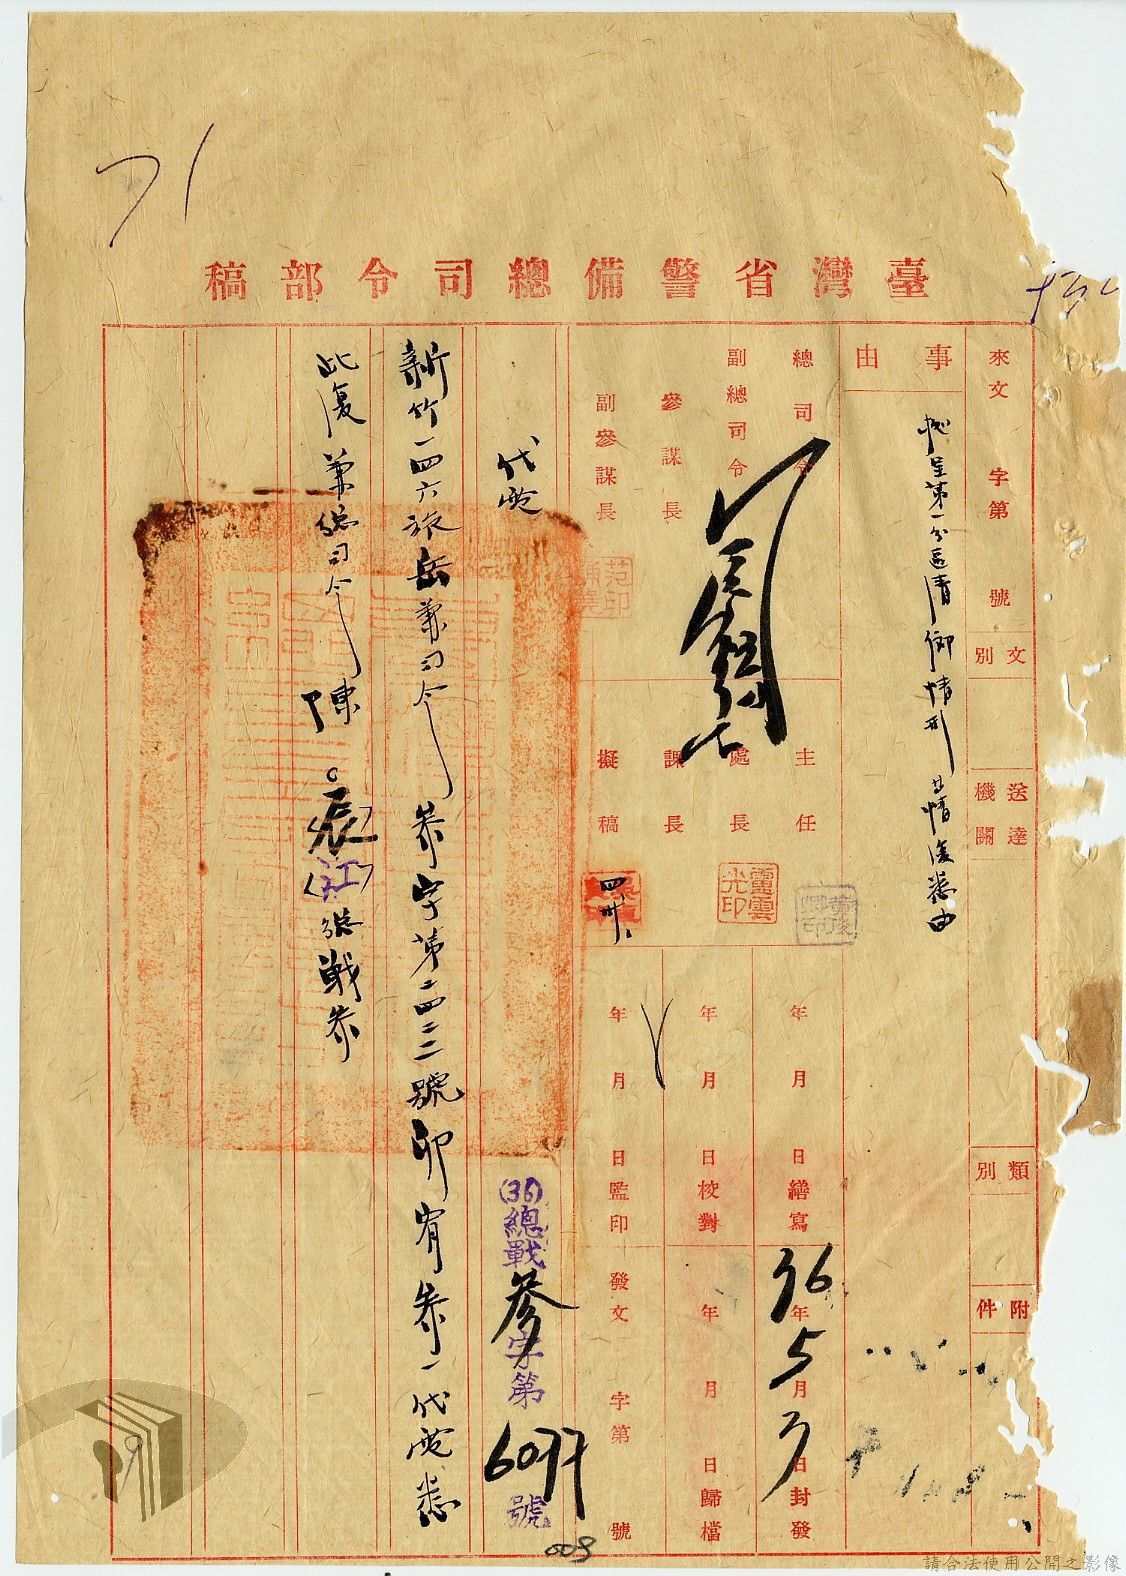 71
臺灣省警備總司令部稿
來文 字第 號
文別
送達機關
類別
附件
事由
據呈第一分區清鄉情形等情復悉由
總司令
副總司令
參謀長
副參謀長
主任
處長
課長
擬稿
四卅
年月日繕寫
年月日校對
年月日監印
36年5月3日封發
年月日歸檔
發文 字第 號
代電
(36)總戰參字第6077號
新竹一四六旅岳兼司令 參字第二四二二號卯宥參一代電悉
此復 兼總司令 陳○辰(江)總戰參
009
請合法使用公開之影像